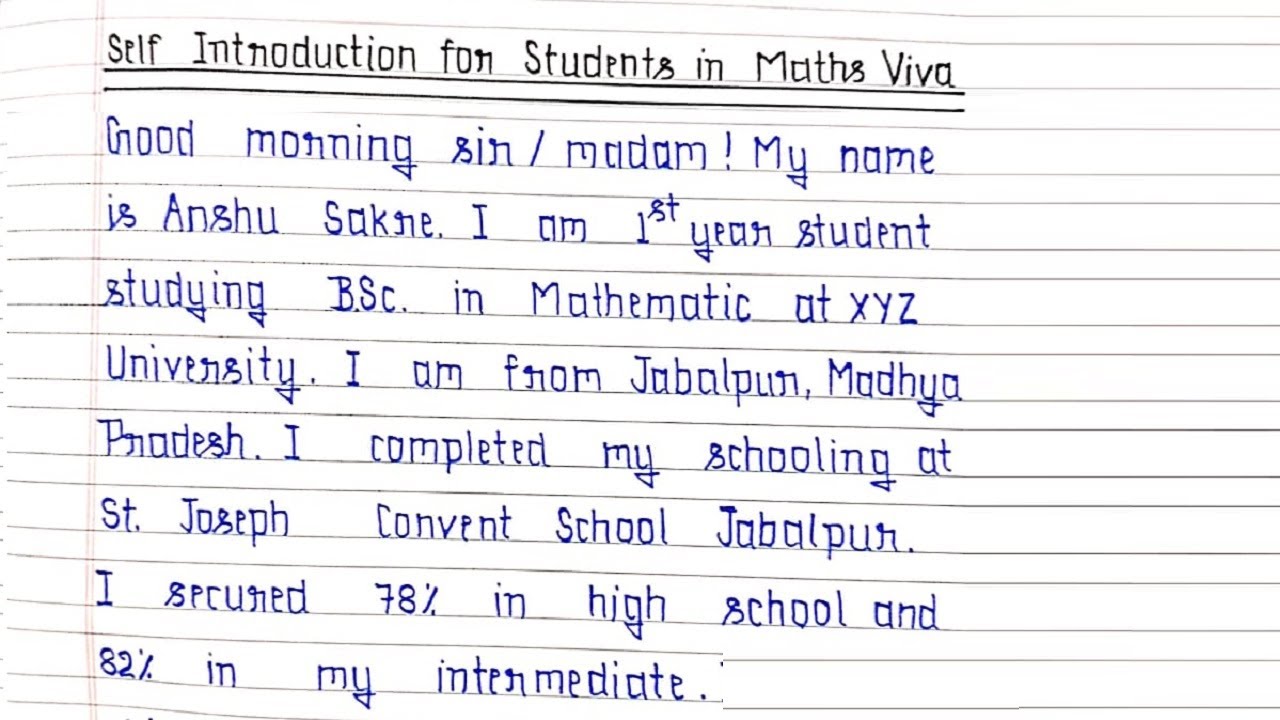 Self Introduction for Students in Maths Viva
Good morning sir / madam! My name
is Anshu Sakre. I am 1st year student
studying B.Sc. in Mathematic at XYZ
University. I am from Jabalpur, Madhya
Pradesh. I completed my schooling at
St. Joseph Convent School Jabalpur.
I secured 78% in high school and
82% in my intermediate.